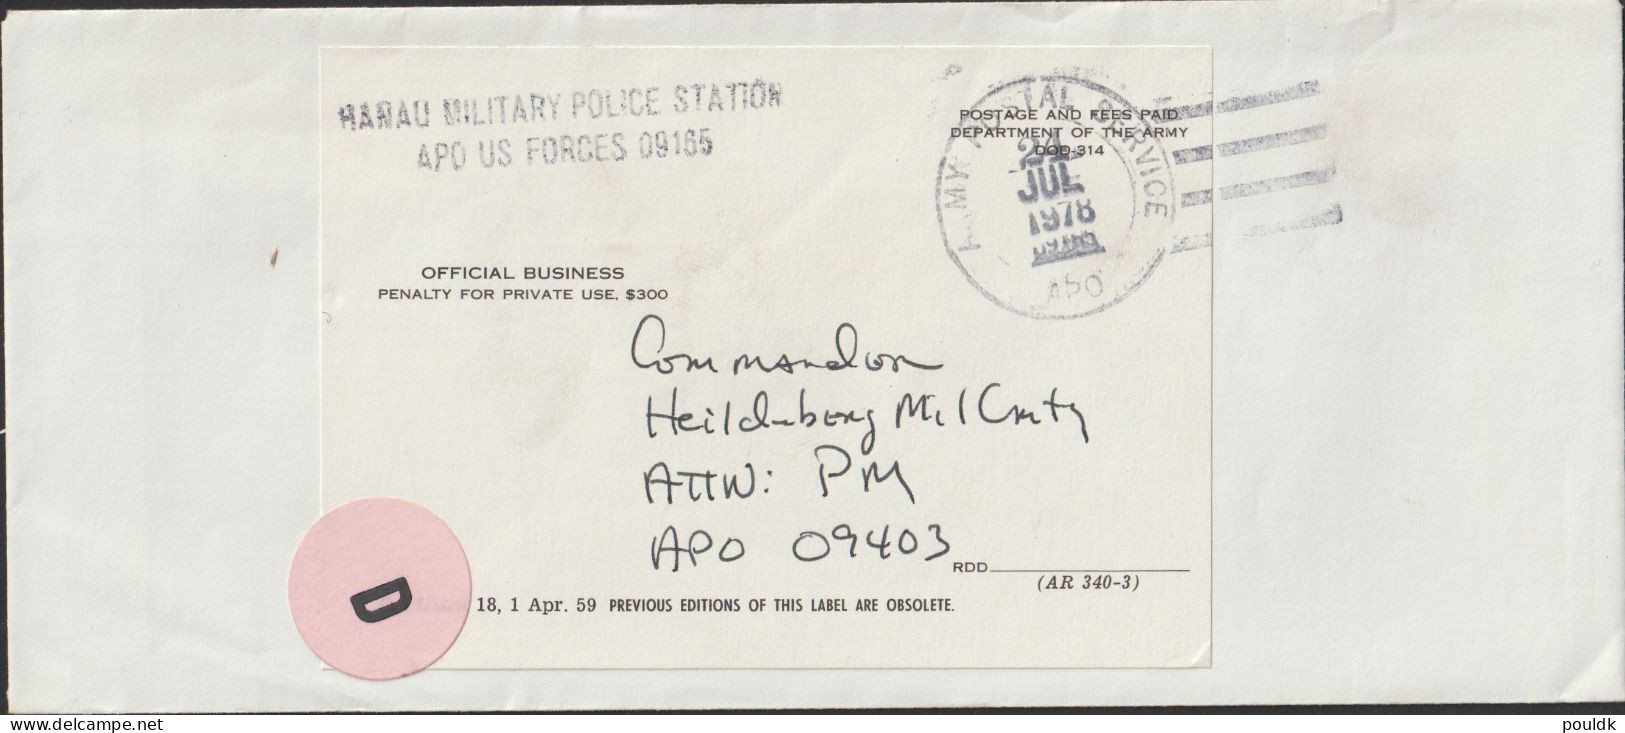 HANAU MILITARY POLICE STATION
APO US FORCES 09165
POSTAGE AND FEES PAID
DEPARTMENT OF THE ARMY
DOD-314
ARMY POSTAL SERVICE
24
JUL
1978
09165
APO
OFFICIAL BUSINESS
PENALTY FOR PRIVATE USE, $300
Commandon
Heildnberg Mil Cmty
ATTN: PM
APO 09403
RDD
(AR 340-3)
D
18, 1 Apr. 59 PREVIOUS EDITIONS OF THIS LABEL ARE OBSOLETE.
delcampe.net
pouldk